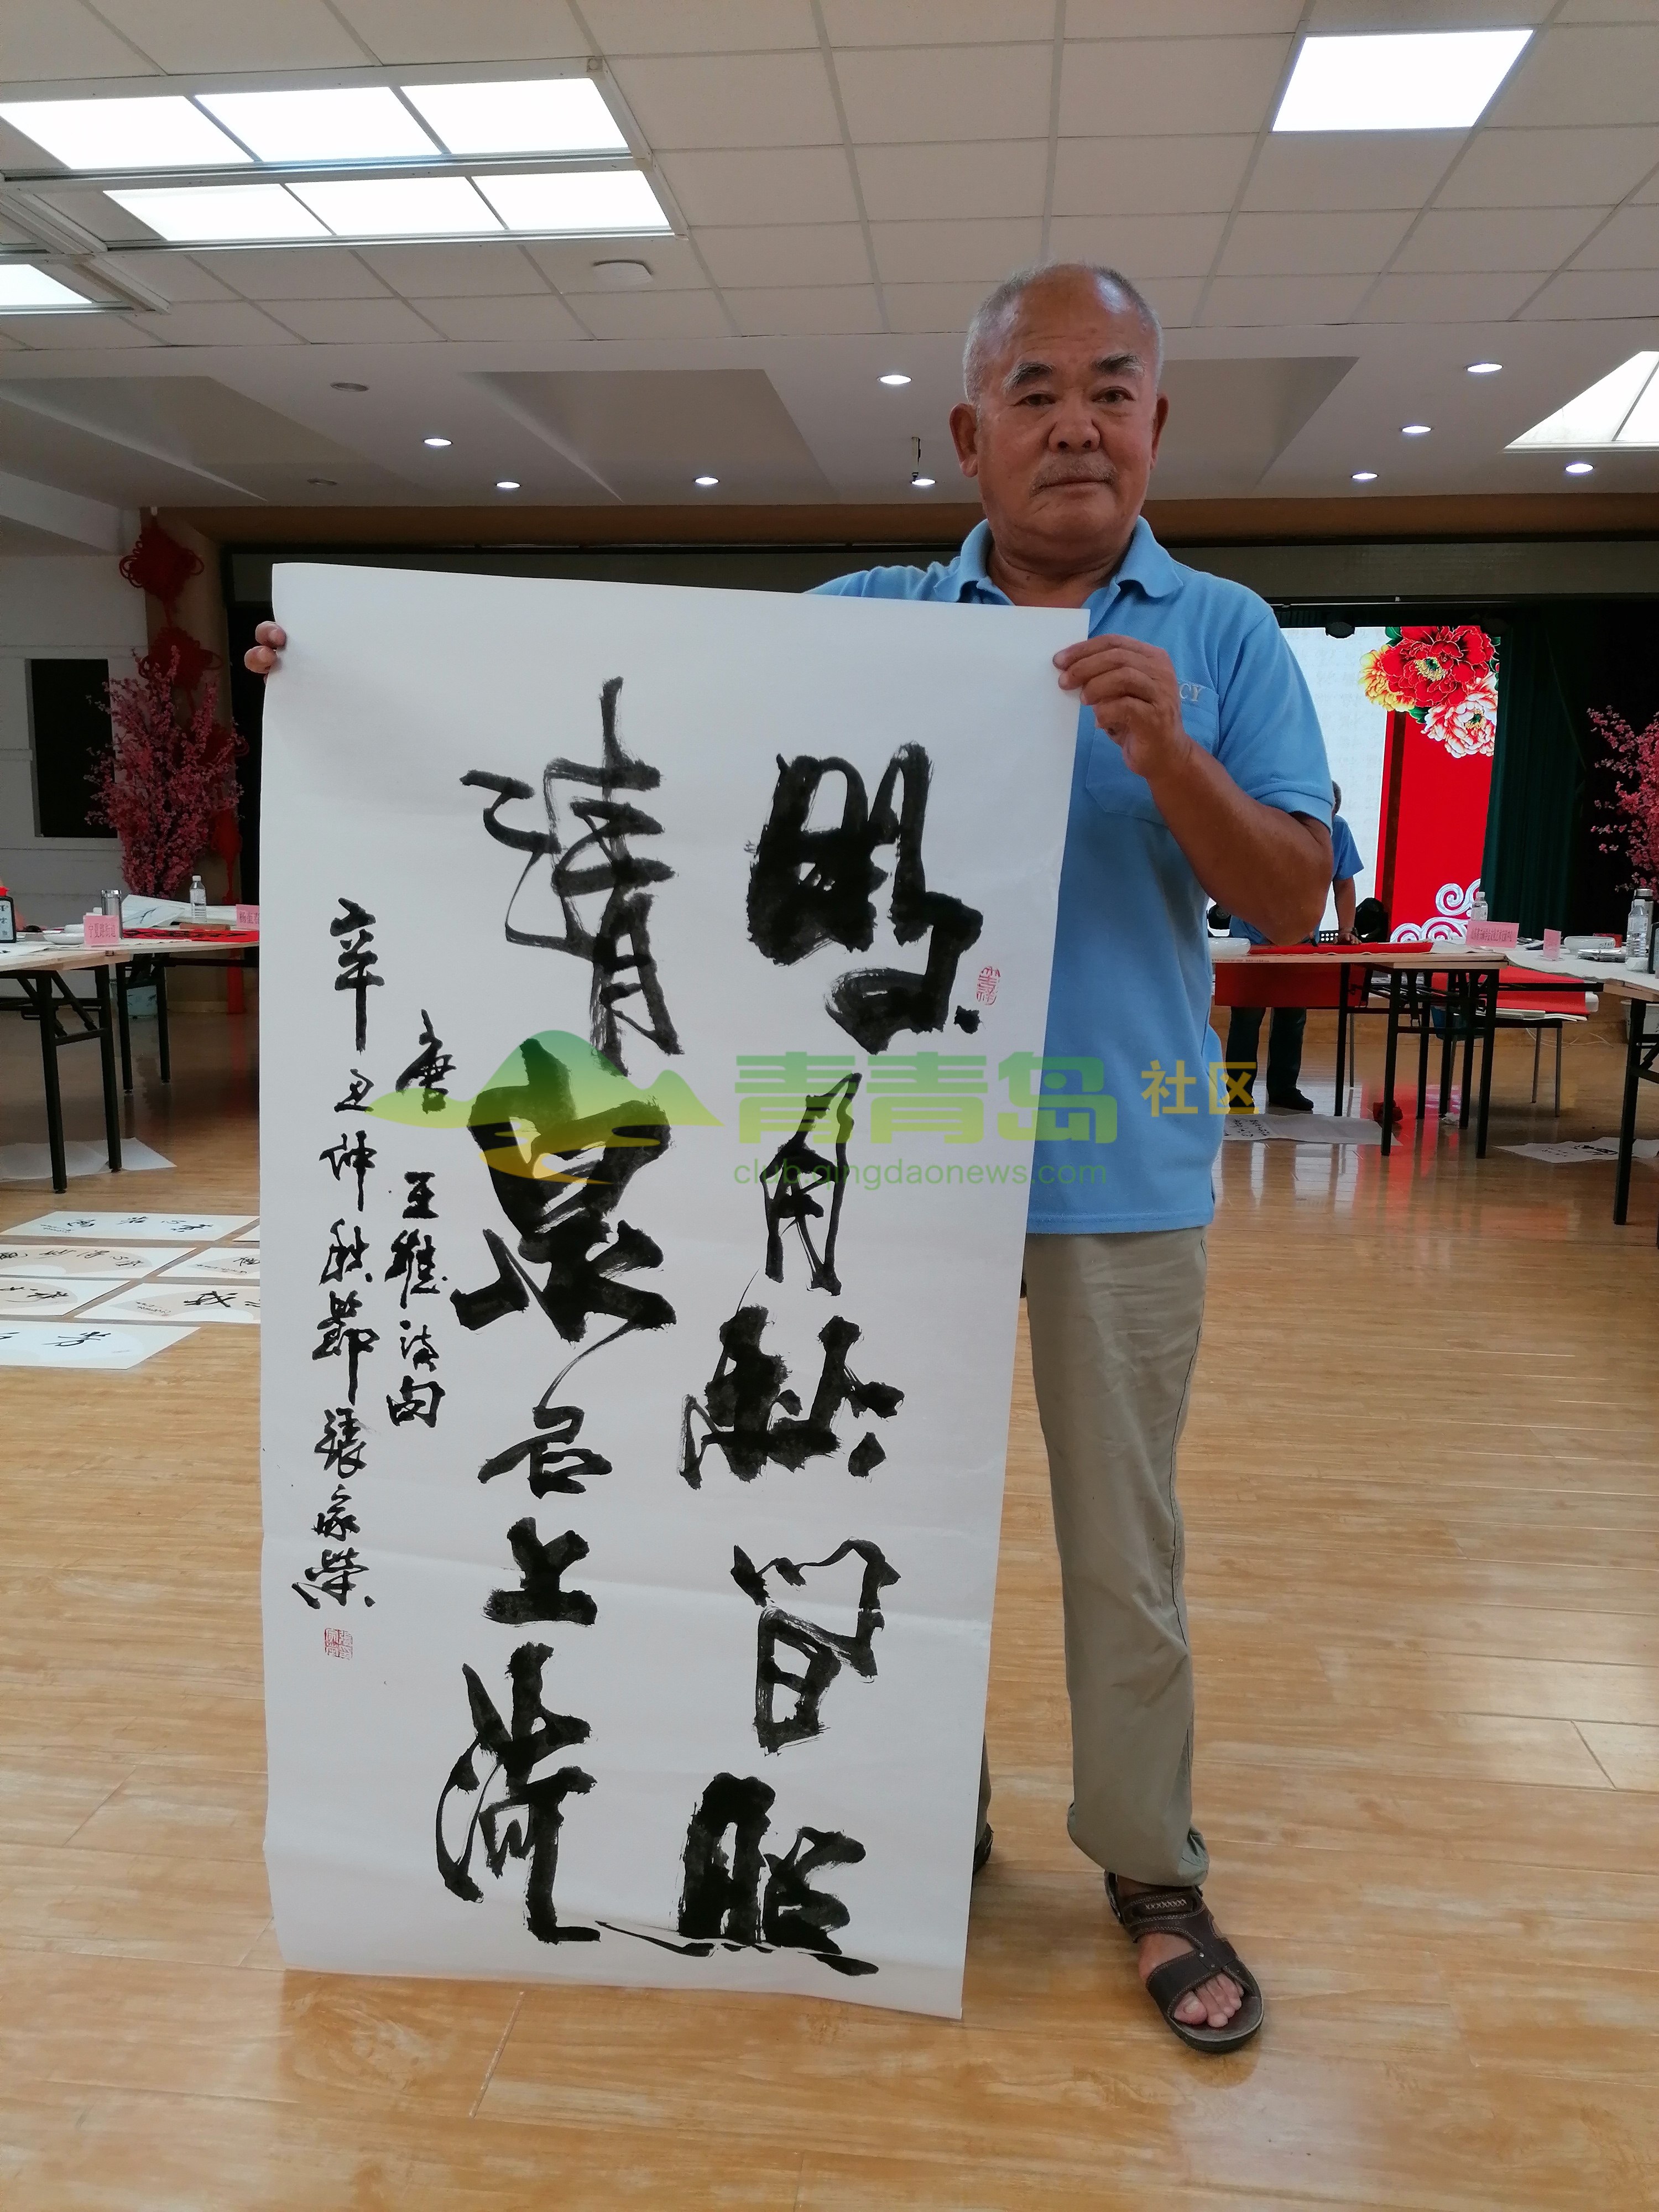 明月松间照
清泉石上流
唐 王維詩句
辛丑仲秋節張家榮
青青岛 社区
club.qingdaonews.com
CY